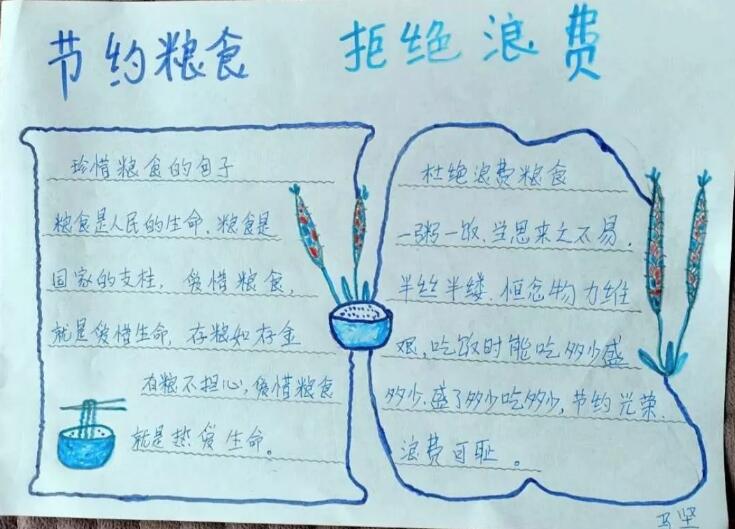 节约粮食 拒绝浪费
珍惜粮食的句子
粮食是人民的生命、粮食是
国家的支柱，爱惜粮食，
就是爱惜生命，存粮如存金
有粮不担心，爱惜粮食
就是热爱生命。
杜绝浪费粮食
一粥一饭、当思来之不易，
半丝半缕、恒念物力维
艰，吃饭时能吃多少盛
多少、盛了多少吃多少，节约光荣、
浪费可耻。
马坚